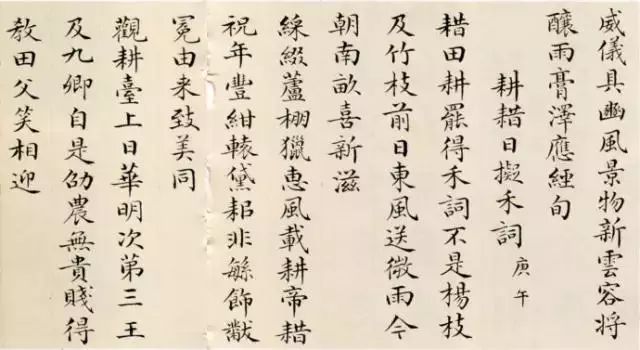 威儀具豳風景物新雲容将
釀雨膏澤應經旬
耕耤日擬禾詞 庚午
耤田耕罷得禾詞不是楊枝
及竹枝前日東風送微雨今
朝南畝喜新滋
綵綴蘆棚獵惠風載耕帝耤
祝年豐紺轅黛耜非緐飾黻
冕由来致美同
觀耕臺上日華明次第三王
及九卿自是劭農無貴賤得
教田父笑相迎